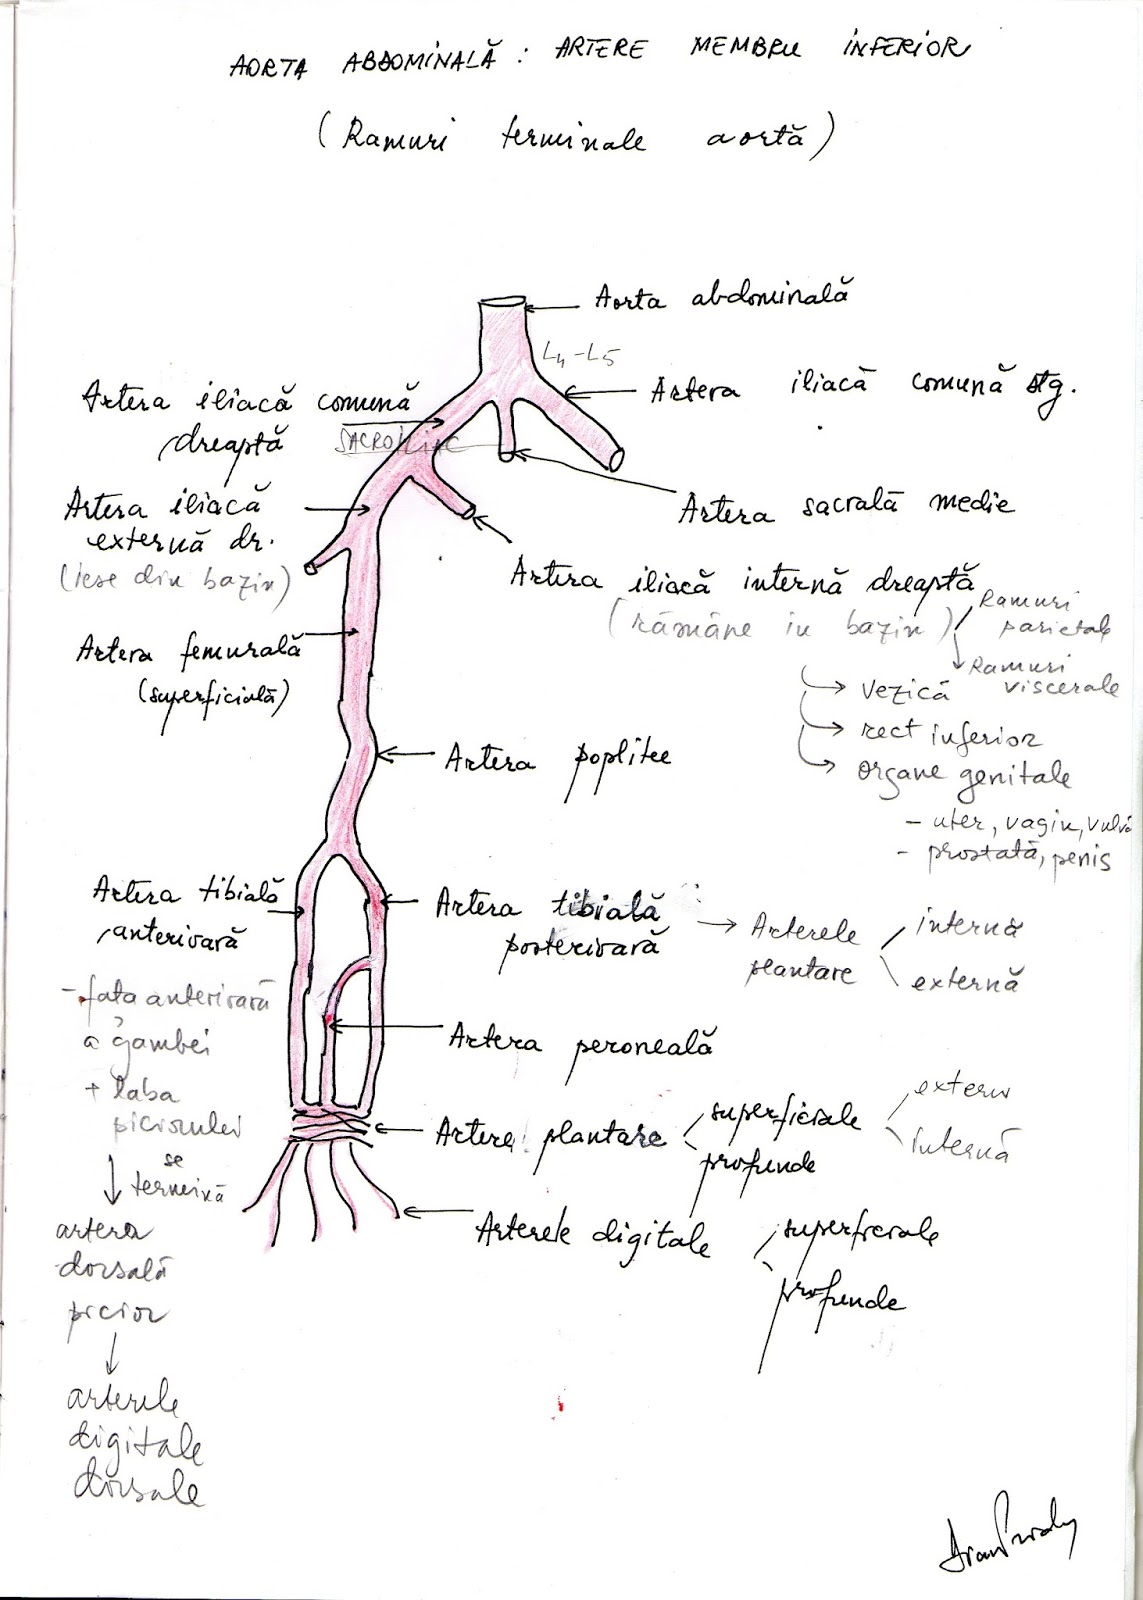 AORTA ABDOMINALĂ : ARTERE MEMBRU INFERIOR
(Ramuri terminale aortă)
Aorta abdominală
L4-L5
Artera iliacă comună stg.
Artera iliacă comună
dreaptă
Artera sacrală medie
Artera iliacă
externă dr.
(iese din bazin)
Artera iliacă internă dreaptă
(rămâne in bazin)
Ramuri
parietale
Ramuri
viscerale
vezică
rect inferior
organe genitale
- uter, vagin, vulvă
- prostată, penis
Artera femurală
(superficială)
Artera poplitee
Artera tibială
anterioară
- fața anterioară
a gambei
+ laba
piciorului
se
termină
artera
dorsală
picior
arterele
digitale
dorsale
Artera tibială
posterioară
Arterele
plantare
internă
externă
Artera peroneală
Artere plantare
superficiale
profunde
extern
internă
Arterele digitale
superficiale
profunde